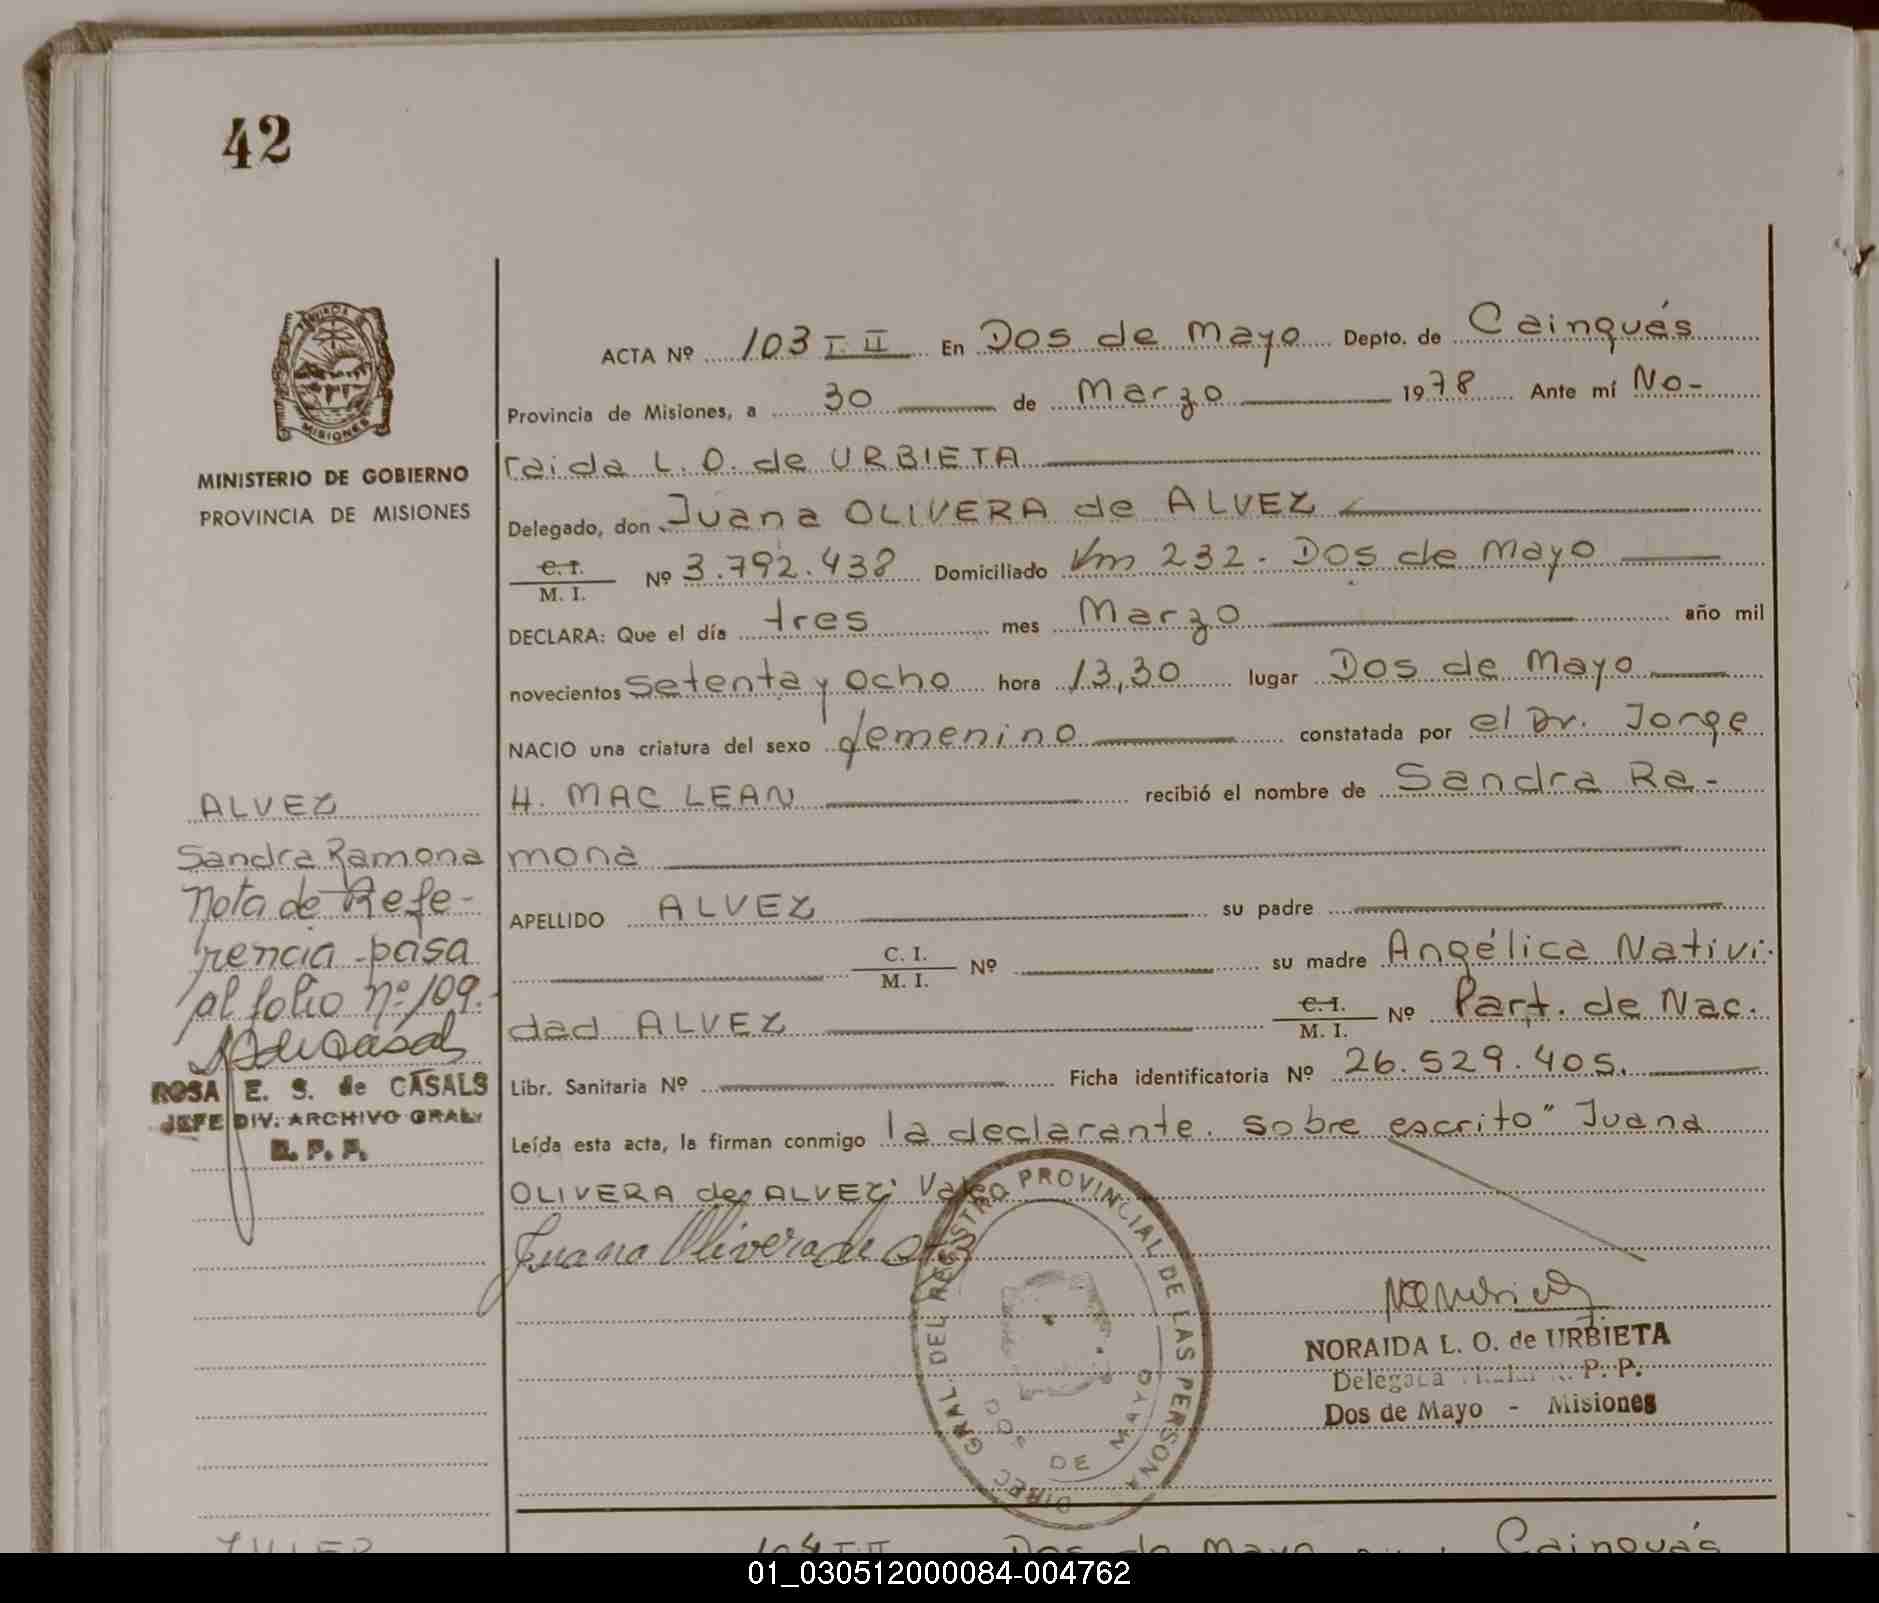 42
PROVINCIA DE
MISIONES
MINISTERIO DE GOBIERNO
PROVINCIA DE MISIONES
ACTA Nº 103 I. II En Dos de Mayo Depto. de Cainguás
Provincia de Misiones, a 30 de Marzo 1978 Ante mí No-
raida L. O. de URBIETA
Delegado, don Juana OLIVERA de ALVEZ
C. I. / M. I. Nº 3.792.438 Domiciliado Km 232. Dos de Mayo
DECLARA: Que el día tres mes Marzo año mil
novecientos setenta y ocho hora 13,30 lugar Dos de Mayo
NACIO una criatura del sexo femenino constatada por el Dr. Jorge
H. MAC LEAN recibió el nombre de Sandra Ra-
mona
APELLIDO ALVEZ su padre
C. I. / M. I. Nº su madre Angélica Nativi-
dad ALVEZ C. I. / M. I. Nº Part. de Nac.
Libr. Sanitaria Nº Ficha identificatoria Nº 26.529.405.
Leída esta acta, la firman conmigo la declarante. Sobre escrito "Juana
OLIVERA de ALVEZ" Vale
Juana Olivera de
ALVEZ
Sandra Ramona
Nota de Refe-
rencia pasa
al folio nº 109.
ROSA E. S. de CASALS
JEFE DIV. ARCHIVO GRAL.
R. P. P.
DIREC GRAL. DEL REGISTRO PROVINCIAL DE LAS PERSONA
DOS DE MAYO
NORAIDA L. O. de URBIETA
Delegada P. P.
Dos de Mayo - Misiones
104 I-II Dos de Mayo Cainguás
01_030512000084-004762